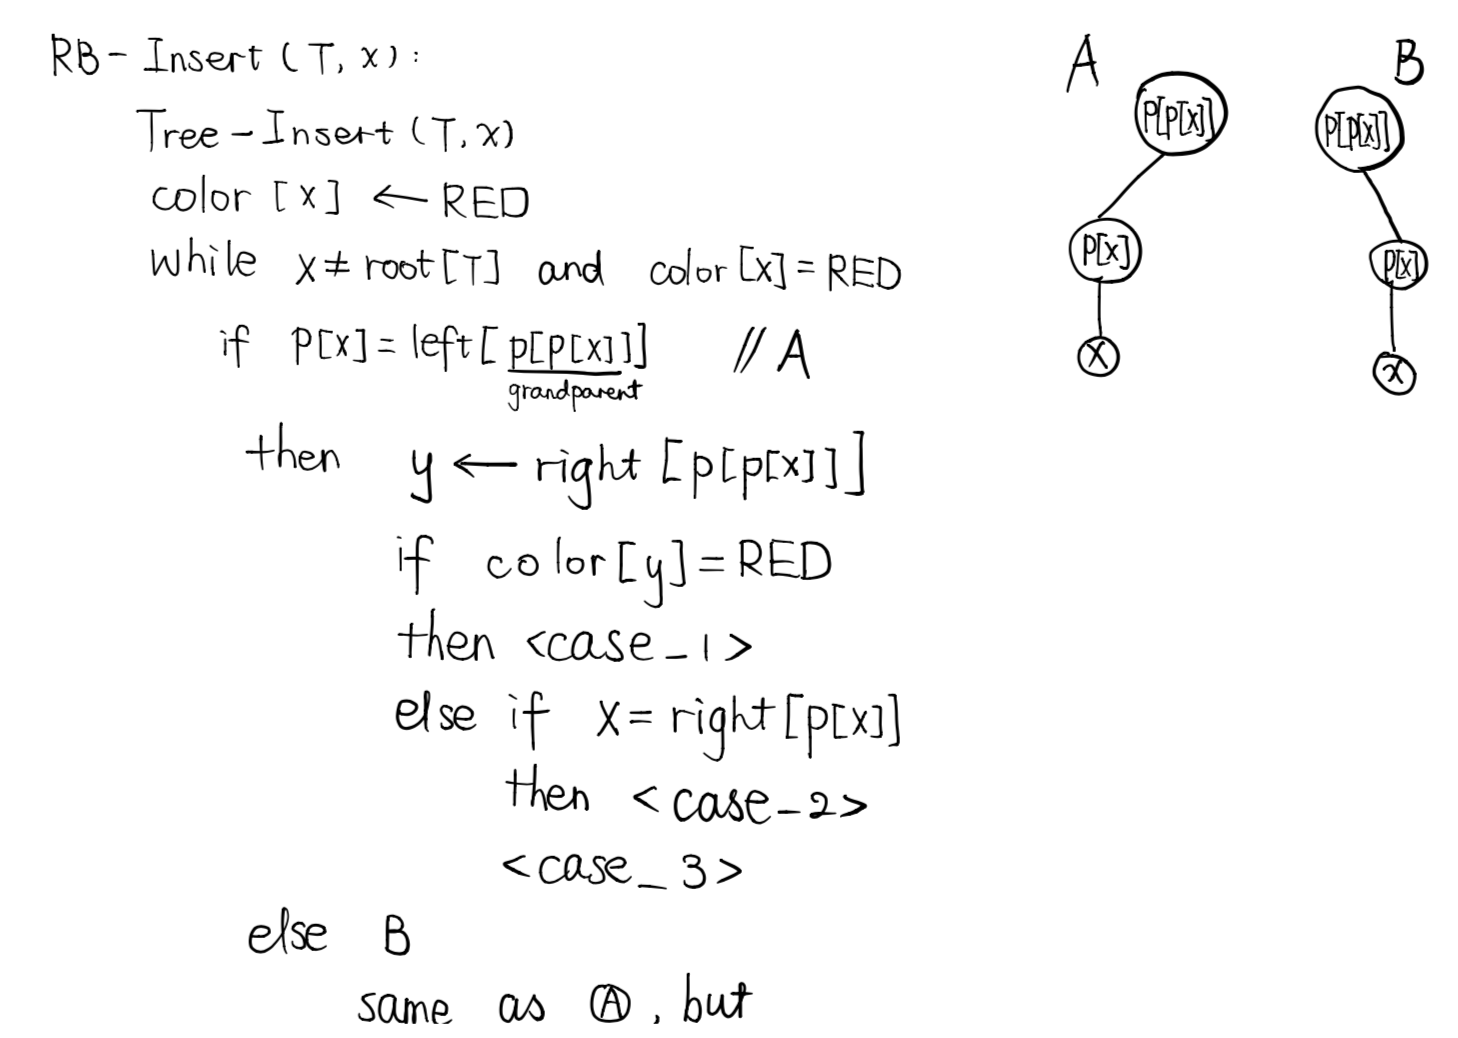 RB-Insert (T, x):
Tree-Insert (T, x)
color [x] ← RED
while x ≠ root[T] and color [x] = RED
if P[x] = left [p[p[x]]] // A
grandparent
then y ← right [p[p[x]]]
if color[y] = RED
then <case_1>
else if x = right [p[x]]
then <case_2>
<case_3>
else B
same as Ⓐ, but
A
P[p[x]]
P[x]
X
B
P[p[x]]
p[x]
x